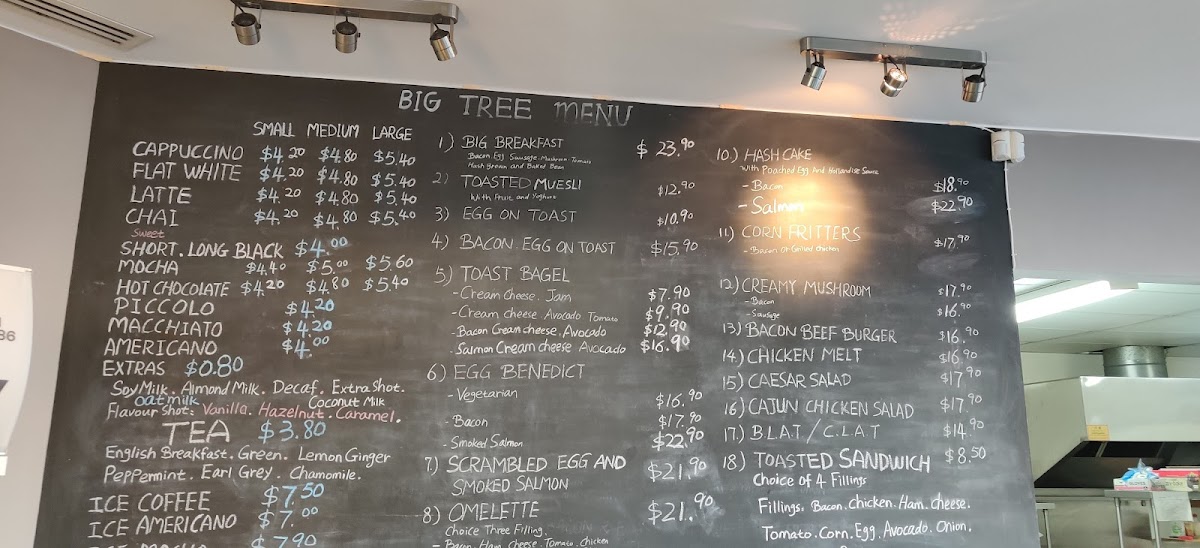 BIG TREE MENU
SMALL MEDIUM LARGE
CAPPUCCINO $4.20 $4.80 $5.40
FLAT WHITE $4.20 $4.80 $5.40
LATTE $4.20 $4.80 $5.40
CHAI $4.20 $4.80 $5.40
Sweet
SHORT. LONG BLACK $4.00
MOCHA $4.40 $5.00 $5.60
HOT CHOCOLATE $4.20 $4.80 $5.40
PICCOLO $4.20
MACCHIATO $4.20
AMERICANO $4.00
EXTRAS $0.80
Soy Milk. Almond Milk. Decaf. Extra shot.
Oat milk Coconut Milk
Flavour shot: Vanilla. Hazelnut. Caramel.
TEA $3.80
English Breakfast. Green. Lemon Ginger
Peppermint. Earl Grey. Chamomile.
ICE COFFEE $7.50
ICE AMERICANO $7.00
$7.90
1) BIG BREAKFAST $23.90
Bacon Egg Sausage Mushroom Tomato
Hash brown and Baked Bean
2) TOASTED MUESLI $12.90
With Fruit and Yoghurt
3) EGG ON TOAST $10.90
4) BACON EGG ON TOAST $15.90
5) TOAST BAGEL
- Cream cheese. Jam $7.90
- Cream cheese Avocado Tomato $9.90
- Bacon Cream cheese. Avocado $12.90
- Salmon Cream cheese Avocado $16.90
6) EGG BENEDICT
- Vegetarian $16.90
- Bacon $17.90
- Smoked Salmon $22.90
7) SCRAMBLED EGG AND $21.90
SMOKED SALMON
8) OMELETTE $21.90
Choice Three Filling.
- Bacon. Ham. Cheese. Tomato. Chicken
10.) HASH CAKE
With Poached Egg And Hollandise Sauce
- Bacon $18.90
- Salmon $22.90
11.) CORN FRITTERS $17.90
- Bacon Or Grilled Chicken
12.) CREAMY MUSHROOM $17.90
- Bacon
- Sausage $16.90
13.) BACON BEEF BURGER $16.90
14.) CHICKEN MELT $16.90
15) CAESAR SALAD $17.90
16) CAJUN CHICKEN SALAD $17.90
17.) B.L.A.T / C.L.A.T $14.90
18) TOASTED SANDWICH $8.50
Choice of 4 Fillings
Fillings. Bacon. Chicken. Ham. cheese.
Tomato. Corn. Egg. Avocado. Onion.